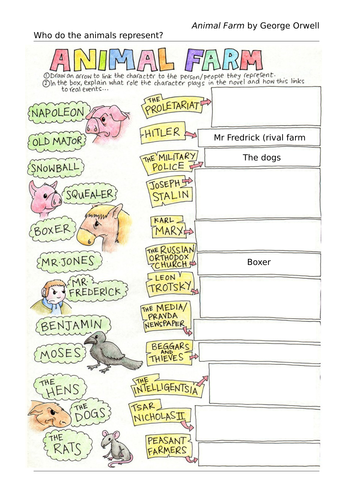 Animal Farm by George Orwell
Who do the animals represent?
ANIMAL FARM
①Draw an arrow to link the character to the person/people they represent.
②In the box, explain what role the character plays in the novel and how this links
to real events...
NAPOLEON
OLD MAJOR
SNOWBALL
SQUEALER
BOXER
MR JONES
MR.
FREDERICK
BENJAMIN
MOSES
THE
HENS
THE
DOGS
THE
RATS
THE
PROLETARIAT
HITLER
Mr Fredrick (rival farm
THE MILITARY
POLICE
The dogs
JOSEPH
STALIN
KARL
MARY
THE RUSSIAN
ORTHODOX
CHURCH
Boxer
LEON
TROTSKY
THE MEDIA/
PRAVDA
NEWSPAPER
BEGGARS
AND
THIEVES
THE
INTELLIGENTSIA
TSAR
NICHOLAS II
PEASANT
FARMERS